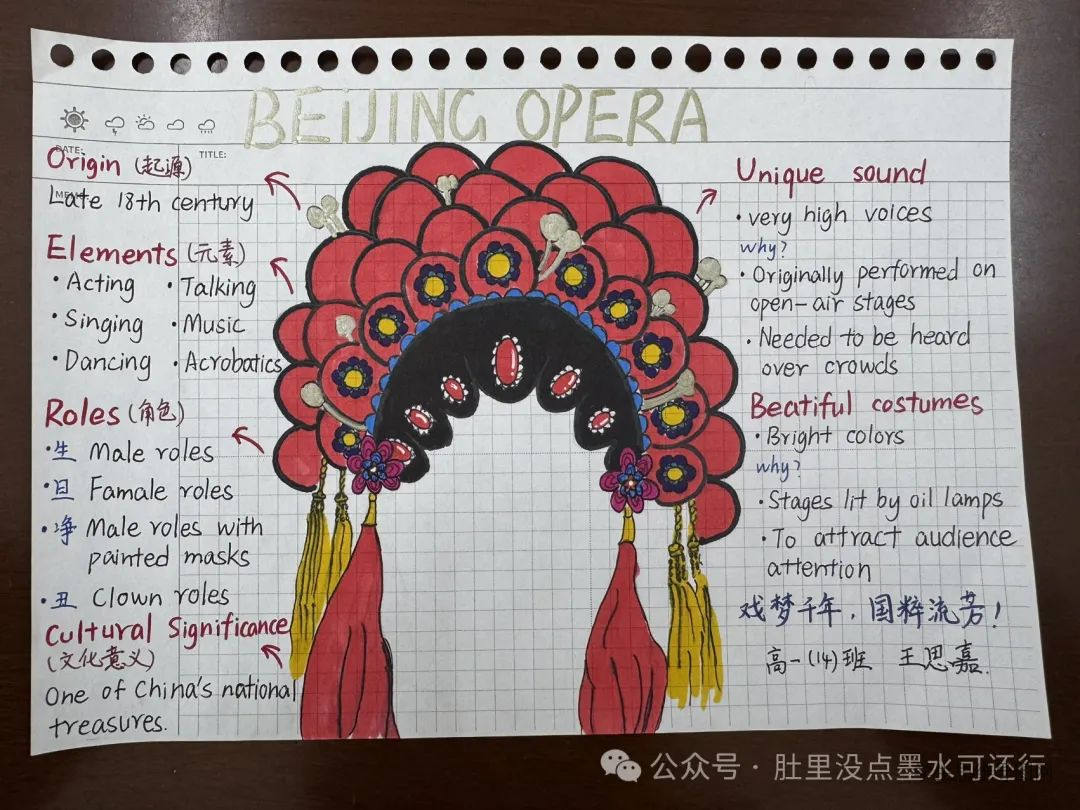 BEIJING OPERA
DATE:
TITLE:
Origin (起源)
Late 18th century
Elements (元素)
· Acting · Talking
· Singing · Music
· Dancing · Acrobatics
Roles (角色)
· 生 Male roles
· 旦 Famale roles
· 净 Male roles with
painted masks
· 丑 Clown roles
Cultural Significance
(文化意义)
One of China's national
treasures.
Unique sound
· very high voices
why?
· Originally performed on
open-air stages
· Needed to be heard
over crowds
Beatiful costumes
· Bright colors
why?
· Stages lit by oil lamps
· To attract audience
attention
戏梦千年，国粹流芳！
高一(14)班 王思嘉.
公众号 · 肚里没点墨水可还行